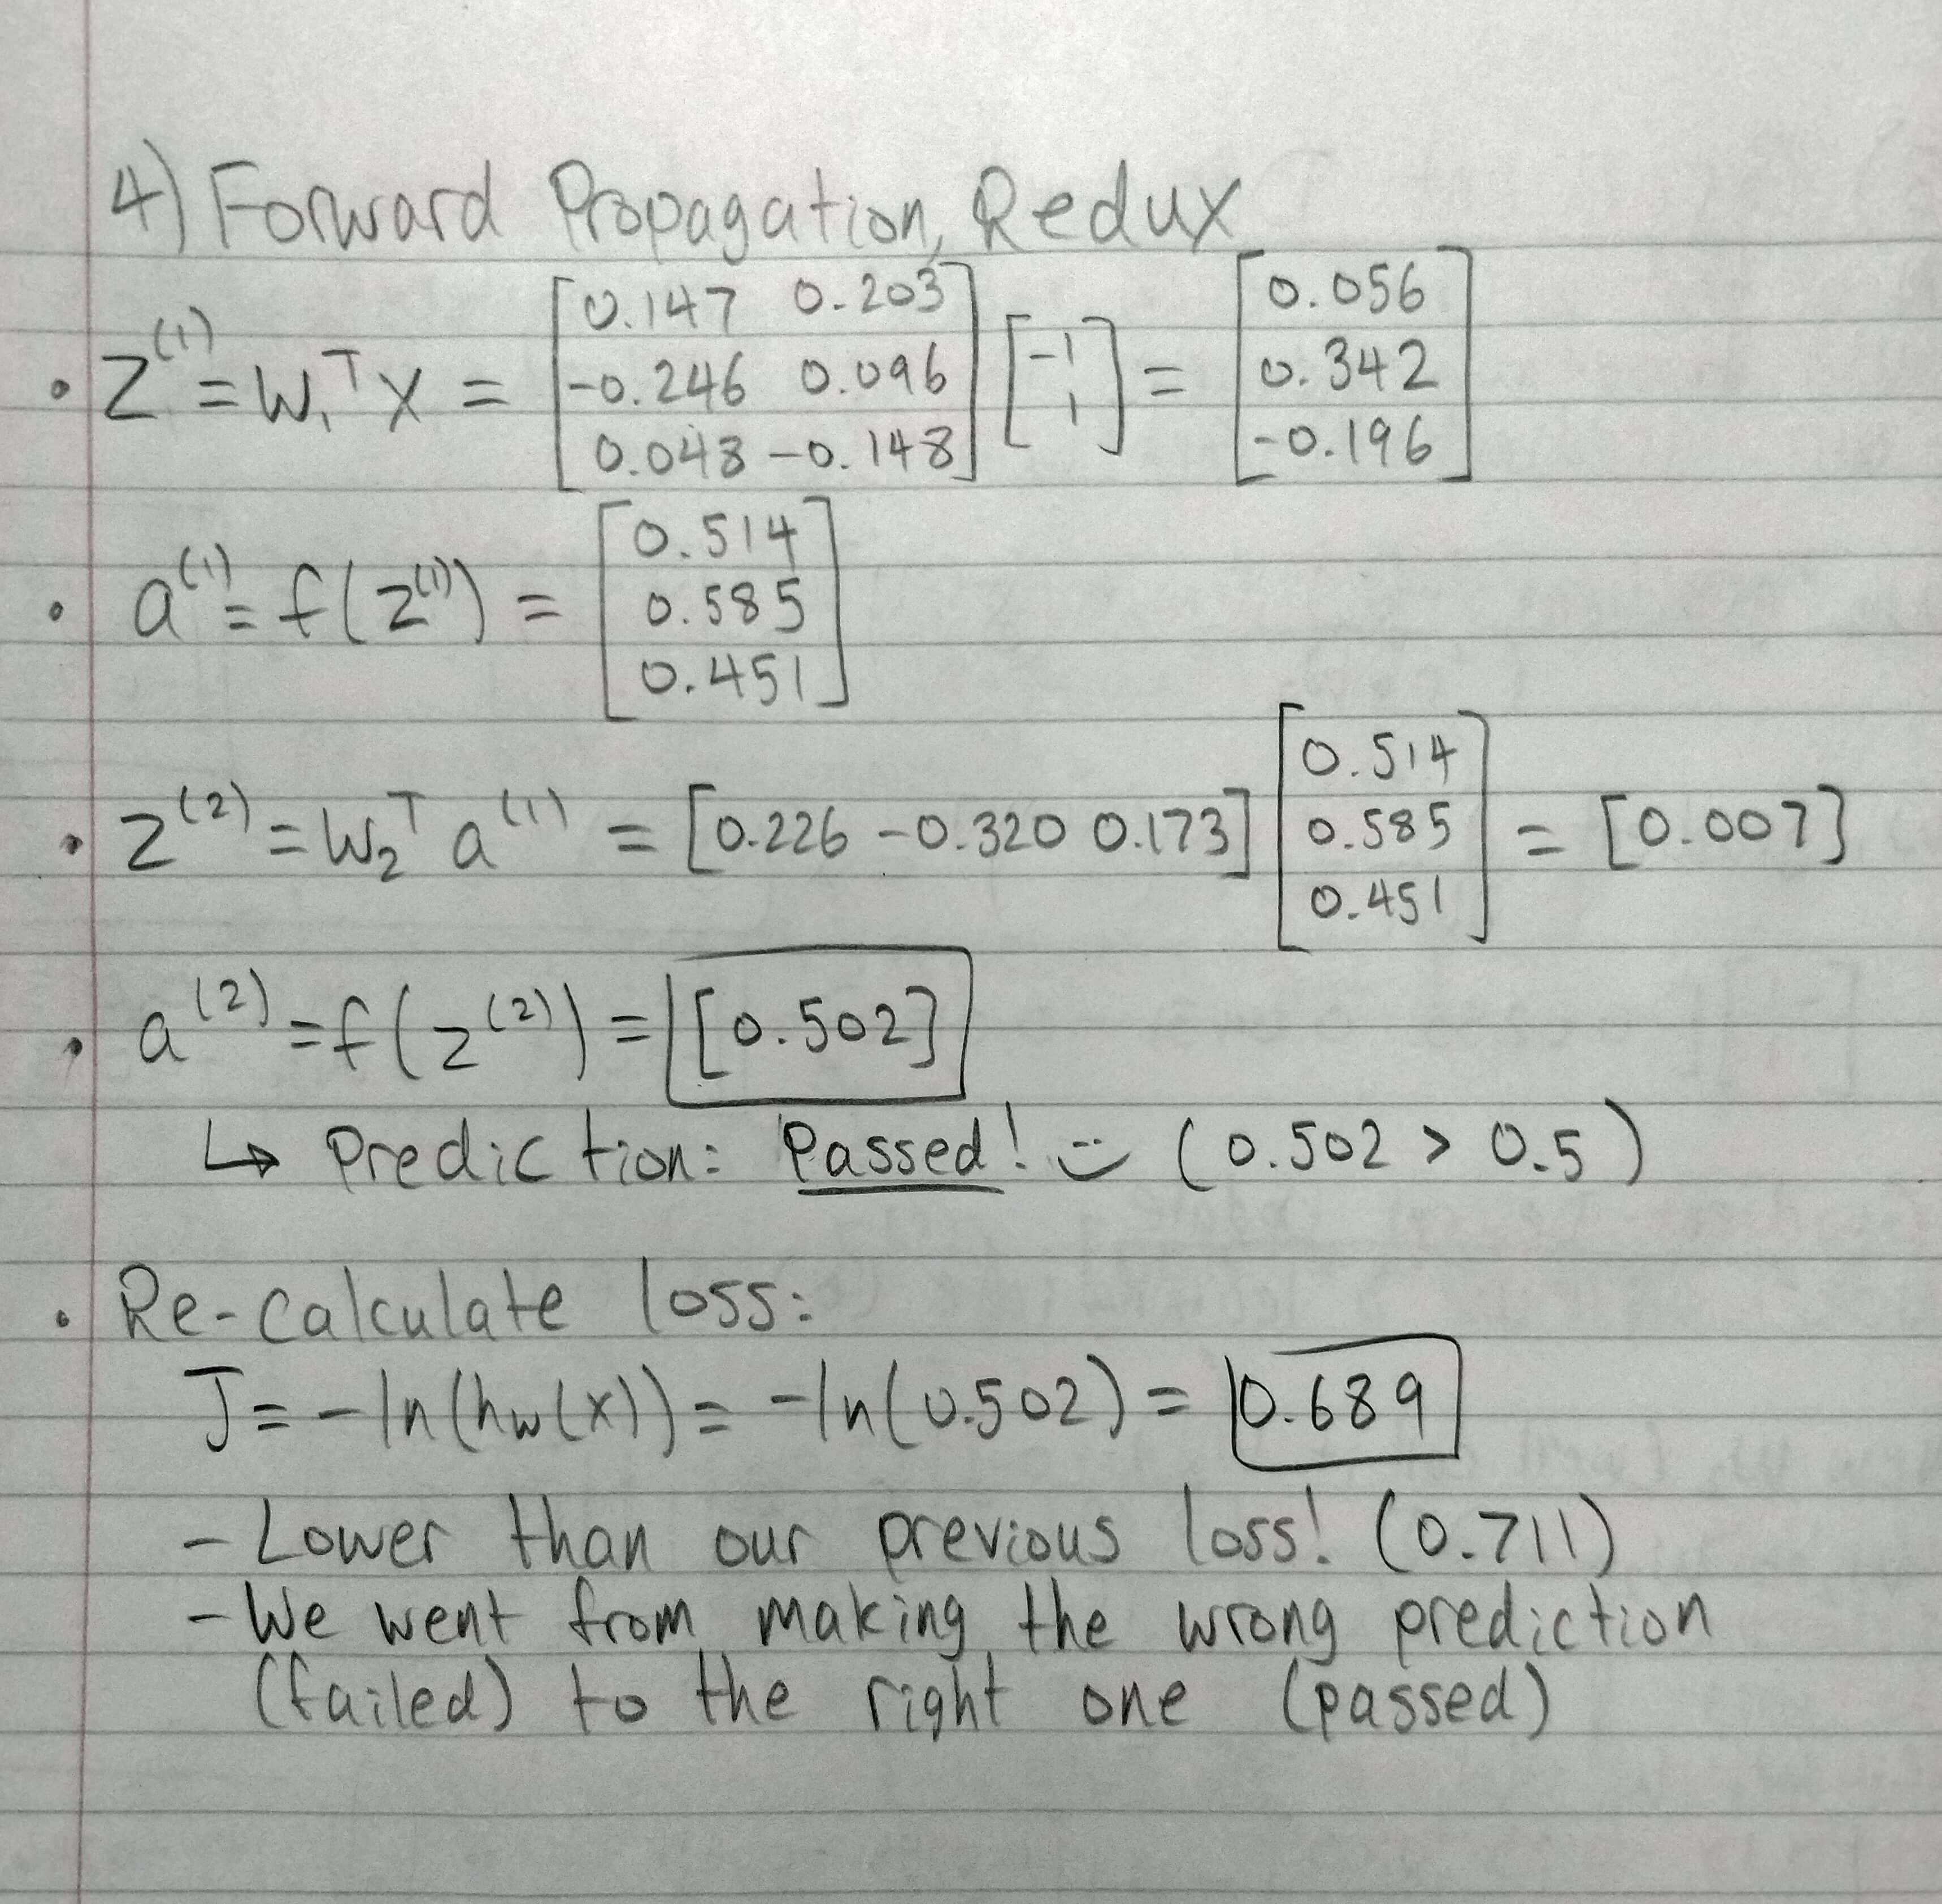 4) Forward Propagation, Redux
• Z⁽¹⁾ = W₁ᵀX = [0.147 0.203; -0.246 0.096; 0.048 -0.148] [-1; 1] = [0.056; 0.342; -0.196]
• a⁽¹⁾ = f(z⁽¹⁾) = [0.514; 0.585; 0.451]
• z⁽²⁾ = W₂ᵀ a⁽¹⁾ = [0.226 -0.320 0.173] [0.514; 0.585; 0.451] = [0.007]
• a⁽²⁾ = f(z⁽²⁾) = [0.502]
↳ Prediction: Passed! :) (0.502 > 0.5)
• Re-calculate loss:
J = -ln(hw(x)) = -ln(0.502) = 0.689
- Lower than our previous loss! (0.711)
- We went from making the wrong prediction
(failed) to the right one (passed)